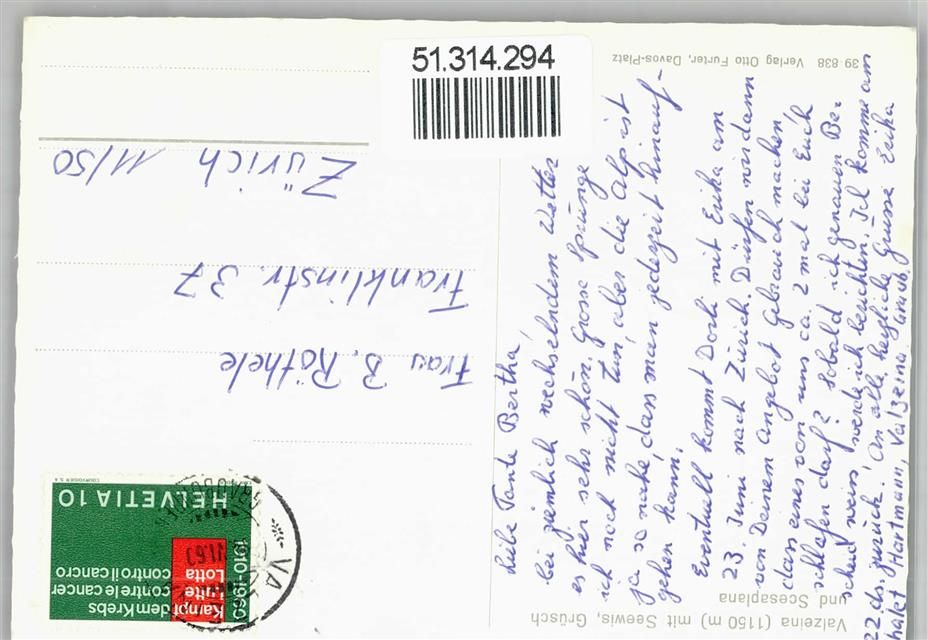 51.314.294
39-838 Verlag Otto Furter, Davos-Platz
Valzeina (1150 m) mit Seewis, Grüsch
und Scesaplana
Liebe Tante Bertha!
bei ziemlich wechselndem Wetter
es hier sehr schön. Grosse Sprünge
ich noch nicht tun, aber die Alp ist
ja so nahe, dass man jederzeit hinauf-
gehen kann.
Eventuell kommt Dorli mit Erika am
23. Juni nach Zürich. Dürfen wir dann
von Deinem Angebot Gebrauch machen
dass eines von uns ca. 2 mal bei Euch
schlafen darf? Sobald ich genauen Be-
scheid weiss werde ich berichten. Ich komme am
22 ds. zurück! An alle herzliche Grüsse Erika
Hartmann, Valzeina Graub.
HELVETIA 10
COURVOISIER S.A.
1910-1960
Kampf dem Krebs
Lutte contre le cancer
Lotta contro il cancro
VA
Frau B. Röthele
Franklinstr. 37
Zürich 11/50